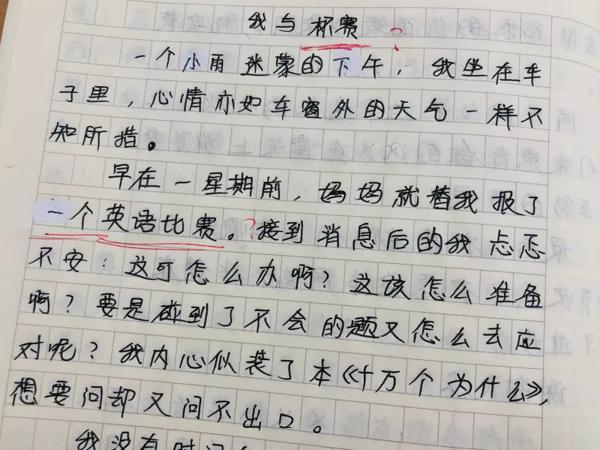 我与杯赛?
一个小雨迷蒙的下午，我坐在车
子里，心情亦如车窗外的天气一样不
知所措。
早在一星期前，妈妈就替我报了
一个英语比赛。?接到消息后的我忐忑
不安：这可怎么办啊？这该怎么准备
啊？要是碰到了不会的题又怎么去应
对呢？我内心似装了本《十万个为什么》，
想要问却又问不出口。
我没有时间